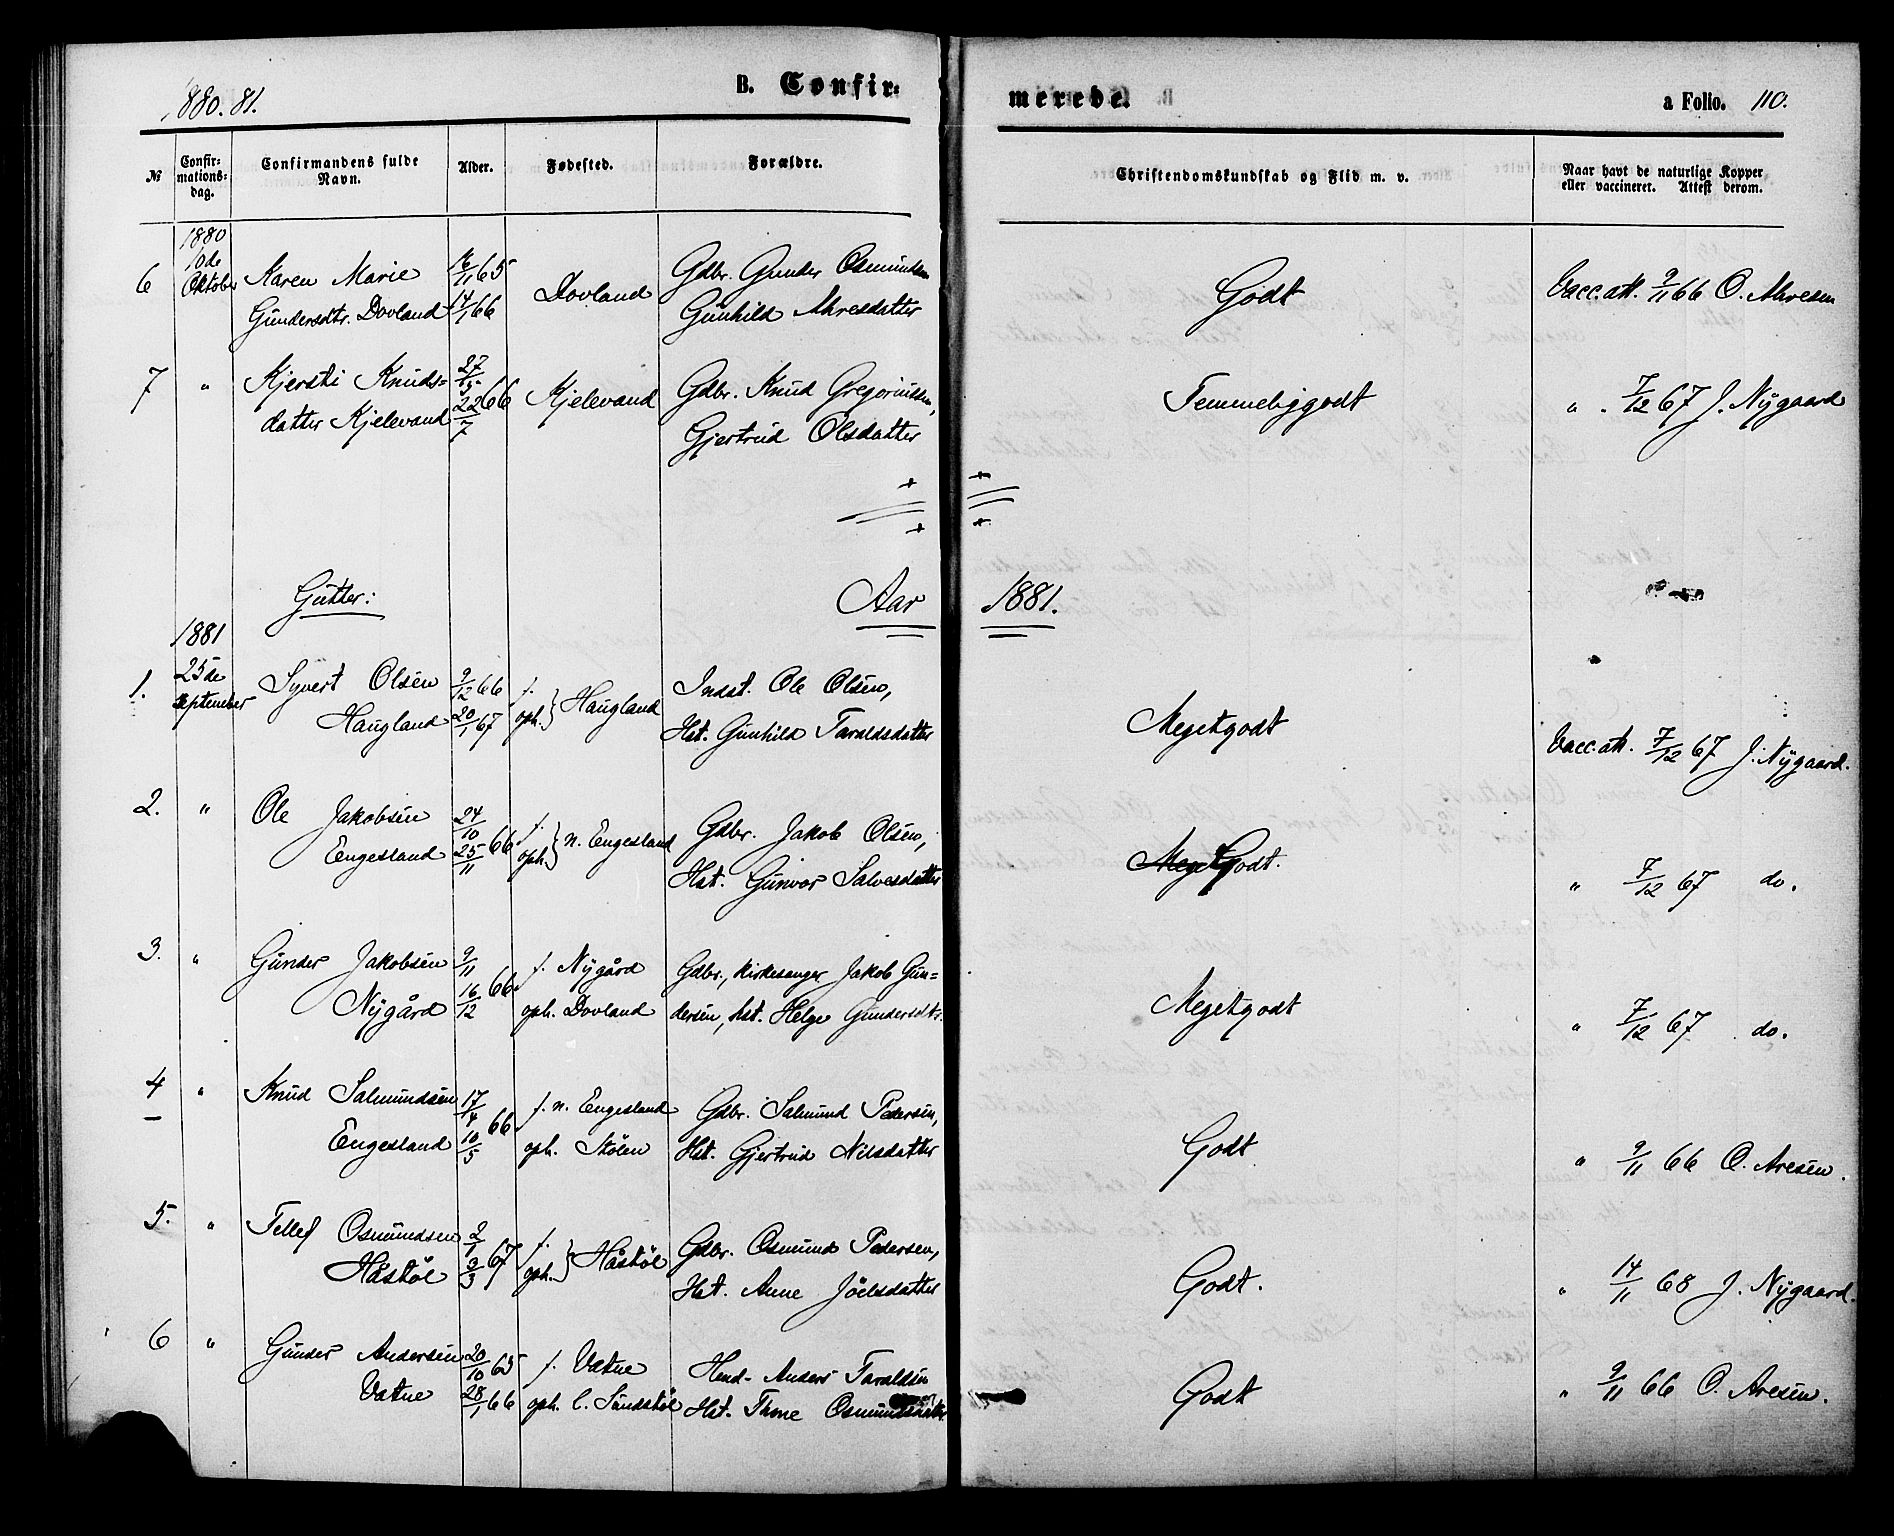 1880. 81.
B. Confir=
merede.
a Folio. 110.
№
Confir=
mations=
dag.
Confirmandens fulde
Navn.
Alder.
Fødested.
Forældre.
Christendomskundskab og Flid m. v.
Naar havt de naturlige Kopper
eller vaccineret. Attest derom.
1880
10de
Oktober
6 Karen Marie 16/11 65 Dovland Gdbr. Gunder Osmundsen Godt Vacc.att. 9/11 66 O. Ahresen
Gundersdtr. Dovland 14/1 66 Gunhild Ahresdatter
7 " Kjersti Knuds= 27/5 66 Kjelevand Gdbr. Knud Gregoriussen, Temmeliggodt " . 7/12 67 J. Nygaard
datter Kjelevand 22/7 Gjertrud Olsdatter
Gutter: Aar 1881.
1881
1. 25de Syvert Olsen 9/12 66 f. Haugland Indst. Ole Olsen, Megetgodt Vacc.att. 7/12 67 J. Nygaard.
September Haugland 20/1 67 oph. Hst. Gunhild Taraldsdatter
2. " Ole Jakobsen 24/10 66 f. n. Engesland Gdbr. Jakob Olsen, Meget Godt. " 7/12 67 do.
Engesland 25/11 oph. Hst. Gunvor Salvesdatter
3. " Gunder Jakobsen 9/11 66 f. Nygård Gdbr., Kirkesanger Jakob Gun= Megetgodt " 7/12 67 do.
Nygård 16/12 oph. Dovland dersen, hst. Helge Gundersdtr.
4 " Knud Salmundsen 17/4 66 f. n. Engesland Gdbr. Salmund Pedersen, Godt " 9/11 66 O. Aresen.
Engesland 10/5 oph. Stølen Hst. Gjertrud Nilsdatter
5. " Tellef Osmundsen 2/1 67 f. Håstøl Gdbr. Osmund Pedersen, Godt. " 14/11 68 J. Nygaard.
Håstøl 3/3 oph. Hst. Anne Joelsdatter
6 " Gunder Andersen 20/10 65 f. Vatne Hmd. Anders Taraldsen Godt " 9/11 66 O. Aresen.
Vatne 28/1 66 oph. l. Sundstøl Hst. Thone Osmundsdatter